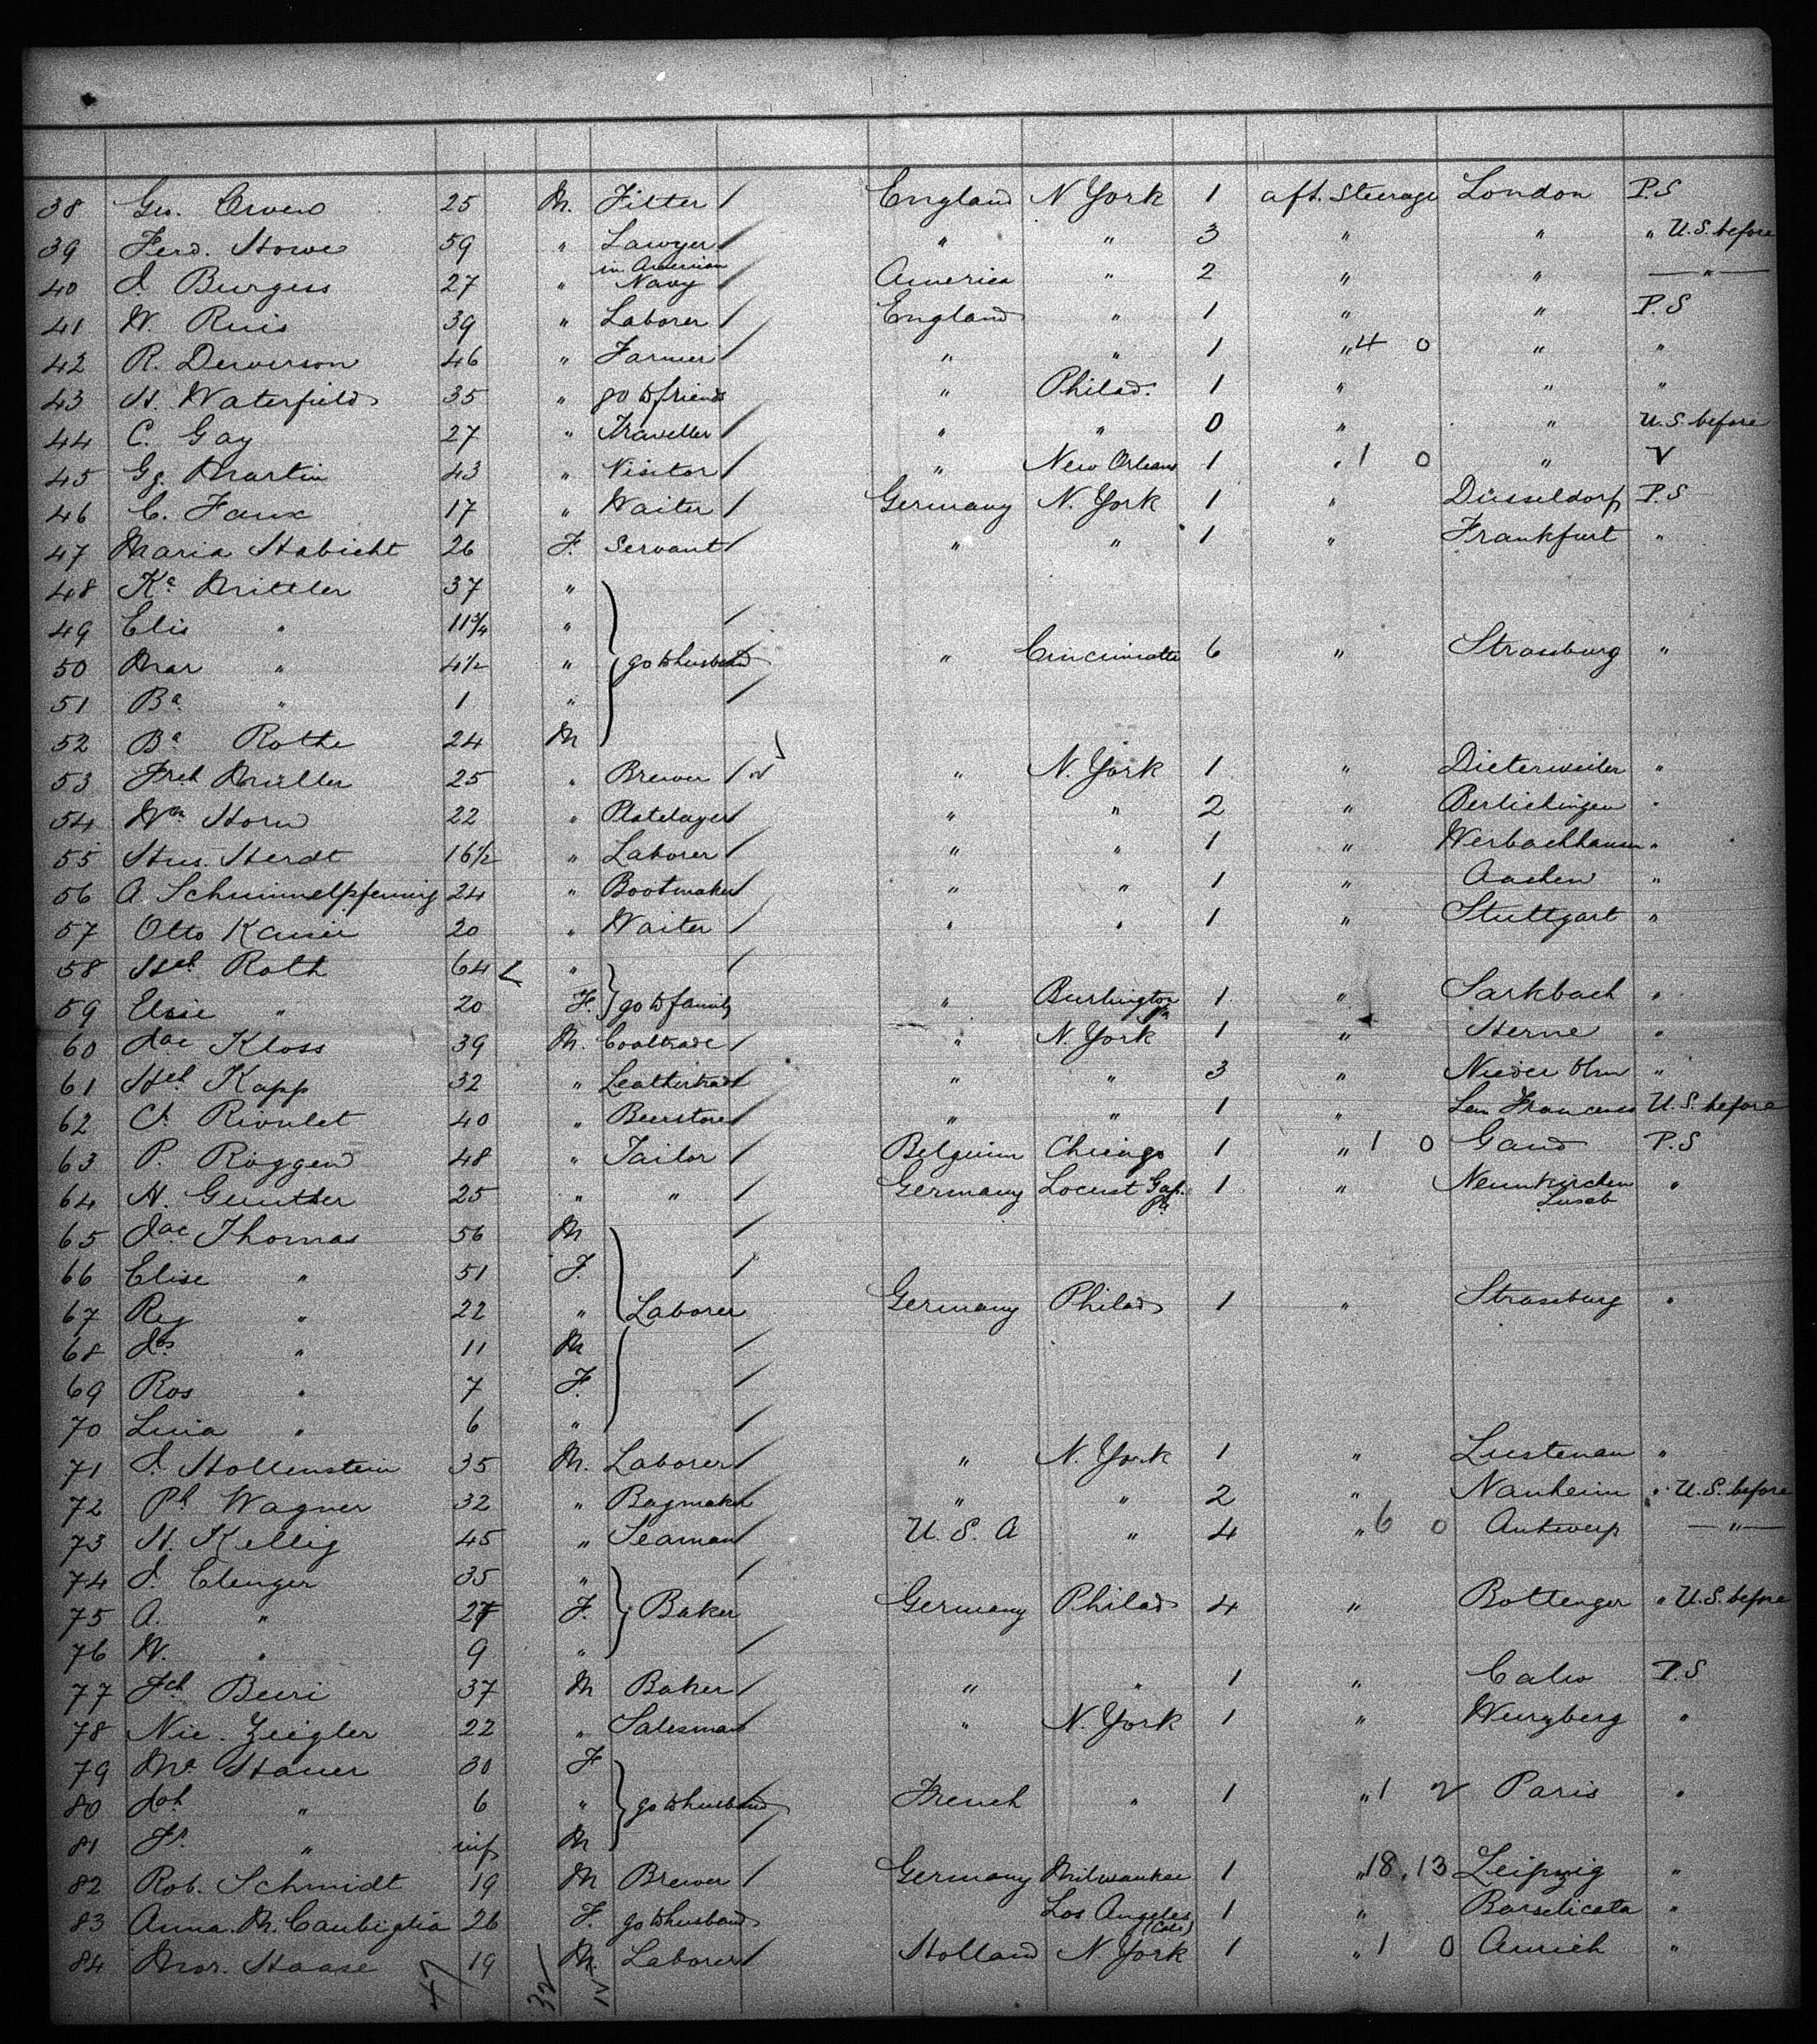 38 Geo. Orven 25 M. Fitter / England N York 1 aft. Steerage London P.S
39 Ferd. Howe 59 " Lawyer / " " 3 " " " U.S. before
40 J. Burgess 27 " in American Navy / America " 2 " " — " —
41 W. Ruis 39 " Laborer / England " 1 " " P.S
42 R. Derverson 46 " Farmer / " " 1 " 4 0 " "
43 H. Waterfield 35 " go to friends " Philad. 1 " " "
44 C. Gay 27 " Traveller / " " 0 " " U.S. before
45 Gg. Martin 43 " Visitor / " New Orleans 1 " 1 0 " V
46 C. Faux 17 " Waiter / Germany N. York 1 " Düsseldorf P.S
47 Maria Habicht 26 F. Servant / " " 1 " Frankfurt "
48 Ka Mittler 37 "
49 Elis " 11 3/4 " /
50 Mar " 4 1/2 " go to husband " Cincinnatti 6 " Strassburg "
51 Ba " 1 " /
52 Ba Rothe 24 M
53 Frch Müller 25 " Brewer / " N. York 1 " Dieterweiler "
54 Wm Horn 22 " Platelayer / " " 2 " Berlichingen "
55 Hus. Herdt 16 1/2 " Laborer / " " 1 " Werbachhausen "
56 A Schimmelpfennig 24 " Bootmaker / " " 1 " Aachen "
57 Otto 20 " Waiter / " " 1 " Stuttgart "
58 Hch Roth 64 " /
59 Elsie " 20 F. go to family " Burlington 1 " Sarkbach "
60 Jac Kloss 39 M. Coaltrade / " N. York 1 " Herne "
61 Hch Kapp 32 " Leathertrade / " " 3 " Nieder Olm "
62 Ch Rivulet 40 " Beerstore / " " 1 " San Francisco U.S. before
63 P. Roggen 48 " Tailor / Belgium Chicago 1 " 1 0 Gand P.S
64 H. Gunther 25 " " / Germany Locust Gap. Pa 1 " Neunkirchen "
65 Jac Thomas 56 M /
66 Elise " 51 F. /
67 Reg " 22 " Laborer Germany Philad 1 " Strassburg "
68 Js " 11 M /
69 Ros " 7 F. /
70 Lina " 6 " /
71 J. Hollenstein 35 M. Laborer / " N. York 1 " Lustenau "
72 Ph Wagner 32 " Bagmaker " " 2 " Nauheim " U.S. before
73 H. Kellig 45 " Seaman / U. S. A " 4 " 6 0 Antwerp — " —
74 J. Clenger 35 " /
75 A. " 27 F. Baker Germany Philad 4 " Bottenger " U.S. before
76 W. " 9 " /
77 Fch Beeri 37 M Baker / " " 1 " Calw P.S
78 Nic. Zeigler 22 " Salesman " N. York 1 " Wurzberg "
79 Ma Hauer 30 F
80 Joh " 6 " go to husband French " 1 " 1 2 Paris "
81 Fr. " inf M /
82 Rob. Schmidt 19 M Brewer / Germany Milwaukee 1 " 18 . 13 Leipzig "
83 Anna. M. Canbiglia 26 F. go to husband Los Angeles (Cale) 1 " Barselicata "
84 Mor. Haase 19 M. Laborer / Holland N York 1 " 1 0 Aurich "
47 32